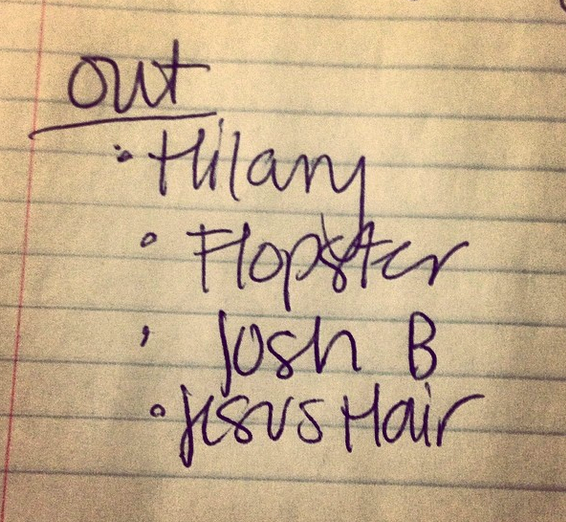 out
• Hilary
• Flopster
• Josh B
• Jesus Hair